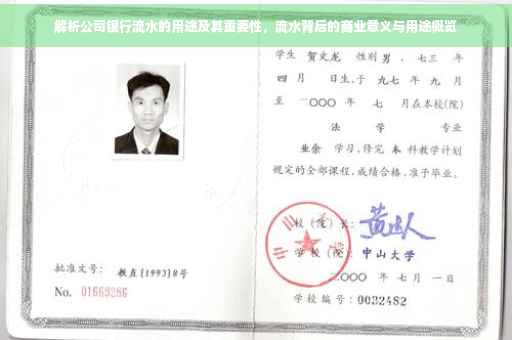 解析公司银行流水的用途及其重要性，流水背后的商业意义与用途概览
学生 贺文龙 性别 男 ，七三 年
四 月 日生，于 九七 年 九 月
至 二〇〇〇 年 七 月在本校(院)
法 学 专业
业余 学习，修完 本 科教学计划
规定的全部课程，成绩合格，准予毕业。
校（院）长：
学 校（院）：中山大学
二〇〇〇 年 七 月 一 日
批准文号： 教直[1993]8号
No. 01669286
学校编号：0032482